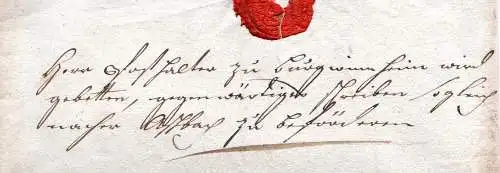 Herr Posthalter zu Burgwinnheim wird
gebetten, gegenwärtiges schreiben sogleich
nacher Asbach zu beförderen